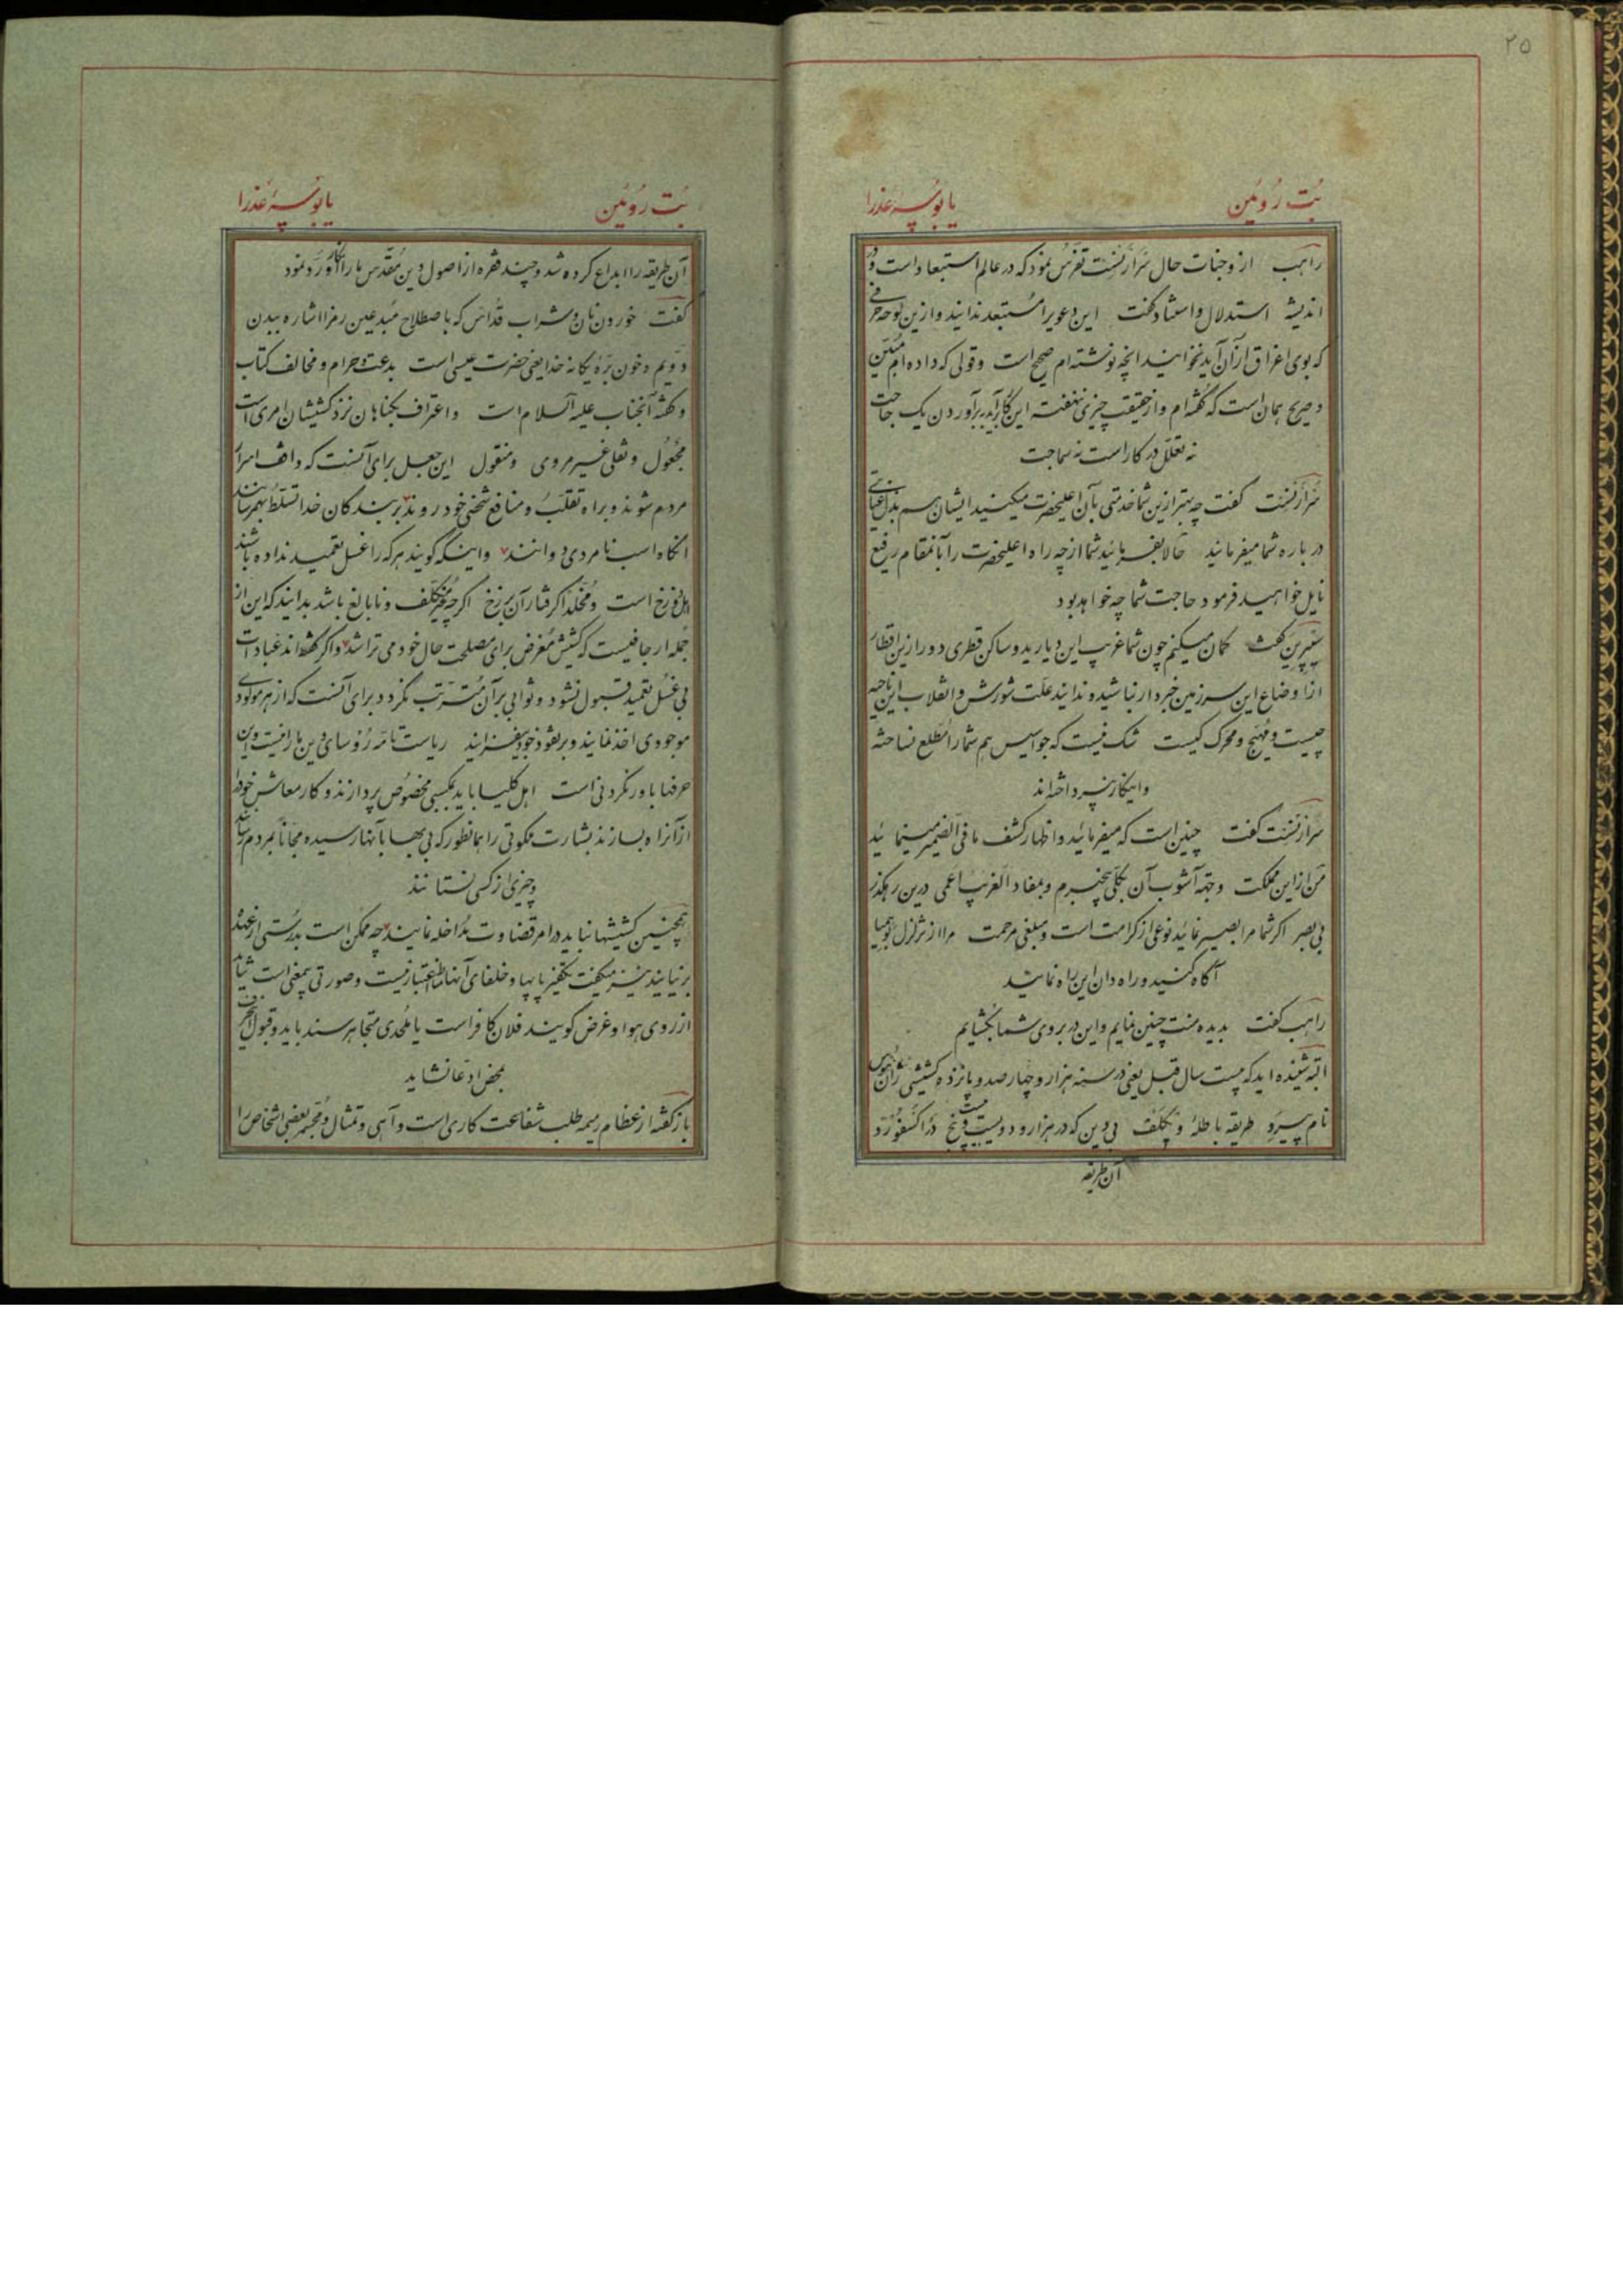 ۲۵
بُت رُوئین یا بُوسهٔ عذرا
راهب از وجنات حال سرارنست تفرس نمود که در عالم استبعاد است و در
اندیشه استدلال و استناد گفت این دعویرا مستبعد ندانید و ازین لوحه حرفی
که بوی اغراق از آن آید نخوانید انچه نوشته‌ام صحیح است و قولی که داده‌ام مبین
و صریح همان است که گفته‌ام و از حقیقت چیزی ننهفته این کار آید برآوردن یک حاجت
نه تعلل در کار است نه سماجت
سرارنست گفت چه بهتر ازین شما خدمتی بآن اعلیحضرت میکنید ایشان هم بذل عنایتی
در باره شما میفرمایند حالا بفرمائید شما از چه راه اعلیحضرت را بآنمقام رفیع
نایل خواهید فرمود حاجت شما چه خواهد بود
گفت گمان میکنم چون شما غریب این دیارید و ساکن قطری دور ازین اقطار
از اوضاع این سرزمین خبردار نباشید و ندانید علت شورش و انقلاب این ناحیه
چیست و مهیج و محرک کیست شک نیست که جواسیس هم شما را مطلع نساخته
و اینکار نپرداخته‌اند
سرارنست گفت چنین است که میفرمائید و اظهار کشف ما فی الضمیر مینمائید
من از این مملکت و جهة آشوب آن بکلی بیخبرم و بمفاد الغریب اعمی درین رهگذر
بی بصر اگر شما مرا بصیر نمائید نوعی از کرامت است و مبلغی مرحمت مرا از تزلزل بوهمیا
آگاه کنید و راه دان این راه نمائید
راهب گفت بدیده منت چنین نمایم و این در بروی شما بگشایم
البته شنیده‌اید که بیست سال قبل یعنی در سنه هزار و چهار صد و پانزده کشیشی ژان هوس
نام پیرو طریقه باطلهٔ ویکلف بی دین که در هزار و دویست و بیست و پنج در اکسفورد
آن طریقه
بُت روئین یا بُوسهٔ عذرا
آن طریقه را ابداع کرده شد و چند فقره از اصول دین مقدس ما را انکار و رد نمود
گفت خوردن نان و شراب قداس که باصطلاح مبدعین رمز اشاره ببدن
و دم و خون برهٔ یگانه خدا یعنی حضرت عیسی است بدعت و حرام و مخالف کتاب
و گفته آنجناب علیه السلام است و اعتراف بگناهان نزد کشیشان امری است
مجعول و نقلی غیر مروی و منقول این جعل برای آنست که واقف اسرار
مردم شوند و براه تقلب و منافع شخصی خود روند بر بندگان خدا تسلط بهم رسانند
انگاه اسب نامردی دوانند و اینکه گویند هرکه را غسل تعمید نداده باشند
اهل دوزخ است و مخلد گرفتار آن برزخ اگرچه غیر مکلف و نابالغ باشد بدانید که این از
جمله ارجافیست که کشیش مغرض برای مصلحت حال خود می تراشد و اگر گفته‌اند عبادات
بی غسل تعمید قبول نشود و ثوابی بر آن مترتب نگردد برای آنست که از هر مولودی
موجودی اخذ نمایند و بر نفوذ خود بیفزایند ریاست تامه رؤسای دین ما را نیست و این
حرفها باور نکردنی است اهل کلیسا باید بکسبی مخصوص پردازند و کار معاش خود را
از آنراه بسازند بشارت ملکوتی را همانطور که بی بها بآنها رسیده مجاناً بمردم رسانند
و چیزی از کسی نستانند
همچنین کشیشها نباید در امر قضاوت مداخله نمایند چه ممکن است بدرستی از عهده
برنیایند نیز میگفت تکفیر پاپها و خلفای آنها مناط اعتبار نیست و صورتی بیمعنی است شاید
از روی هوا و غرض گویند فلان کافر است یا ملحدی متجاهر سند باید و قبول این حرف
بمحض ادعا نشاید
باز گفته از عظام رمیمه طلب شفاعت کاری است واهی و تمثال و مجسمه بعضی اشخاص را